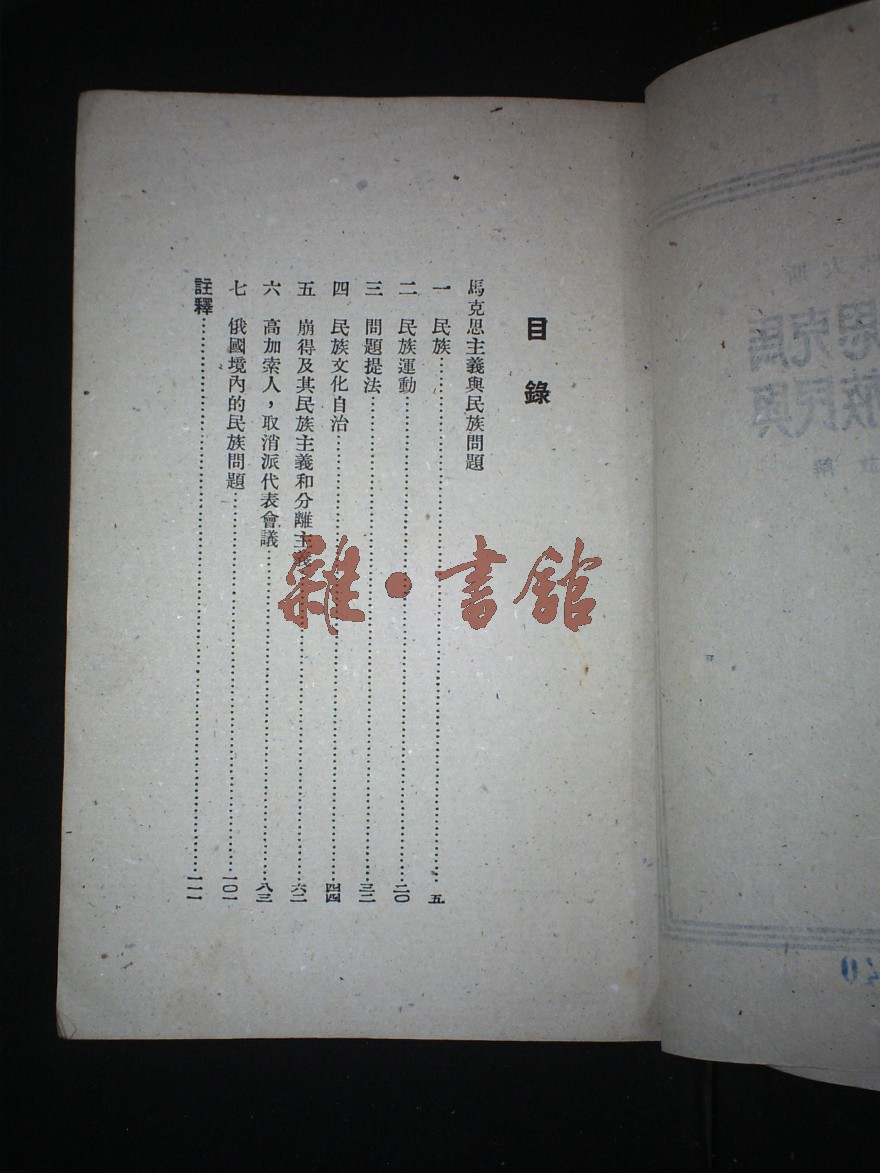 目錄
馬克思主義與民族問題
一 民族……五
二 民族運動……二〇
三 問題提法……三二
四 民族文化自治……四四
五 崩得及其民族主義和分離主義……六二
六 高加索人，取消派代表會議……八三
七 俄國境內的民族問題……一〇一
註釋……一一一
雜·書館